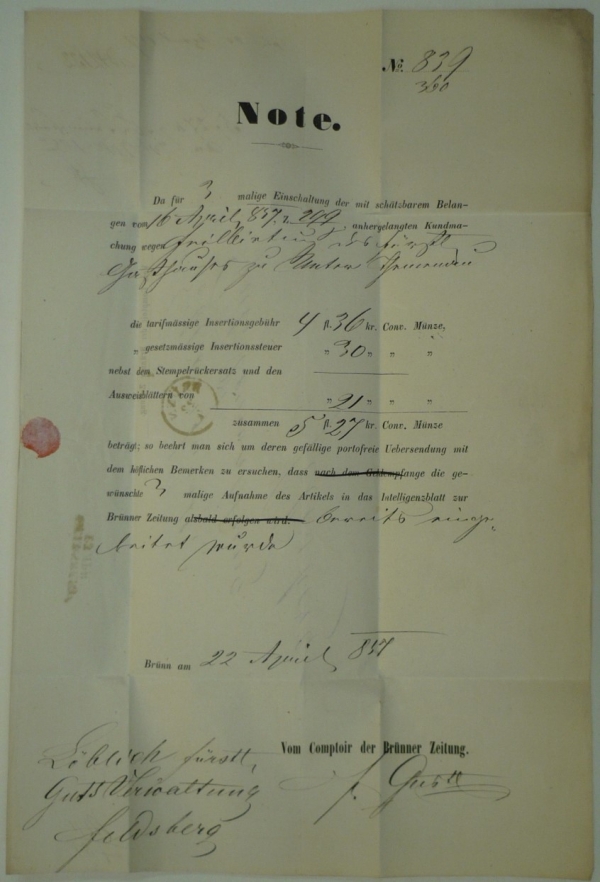 № 839
360
Note.
Da für 3 malige Einschaltung der mit schätzbarem Belan-
gen vom 16 April 857, z 299 anhergelangten Kundma-
chung wegen des fürstl
Gasthauses zu Unter Themenau
die tarifmässige Insertionsgebühr 4 fl. 36 kr. Conv. Münze,
„ gesetzmässige Insertionssteuer „ 30 „ „ „
nebst den Stempelrückersatz und den
Ausweisblättern von „ 21 „ „ „
zusammen 5 fl. 27 kr. Conv. Münze
beträgt; so beehrt man sich um deren gefällige portofreie Uebersendung mit
dem höflichen Bemerken zu ersuchen, dass nach dem Geldempfange die ge-
wünschte 3 malige Aufnahme des Artikels in das Intelligenzblatt zur
Brünner Zeitung alsbald erfolgen wird. bereits einge-
leitet wurde
Brünn am 22 April 857
Vom Comptoir der Brünner Zeitung.
Löblich fürstl,
Guts Verwaltung
Feldsberg